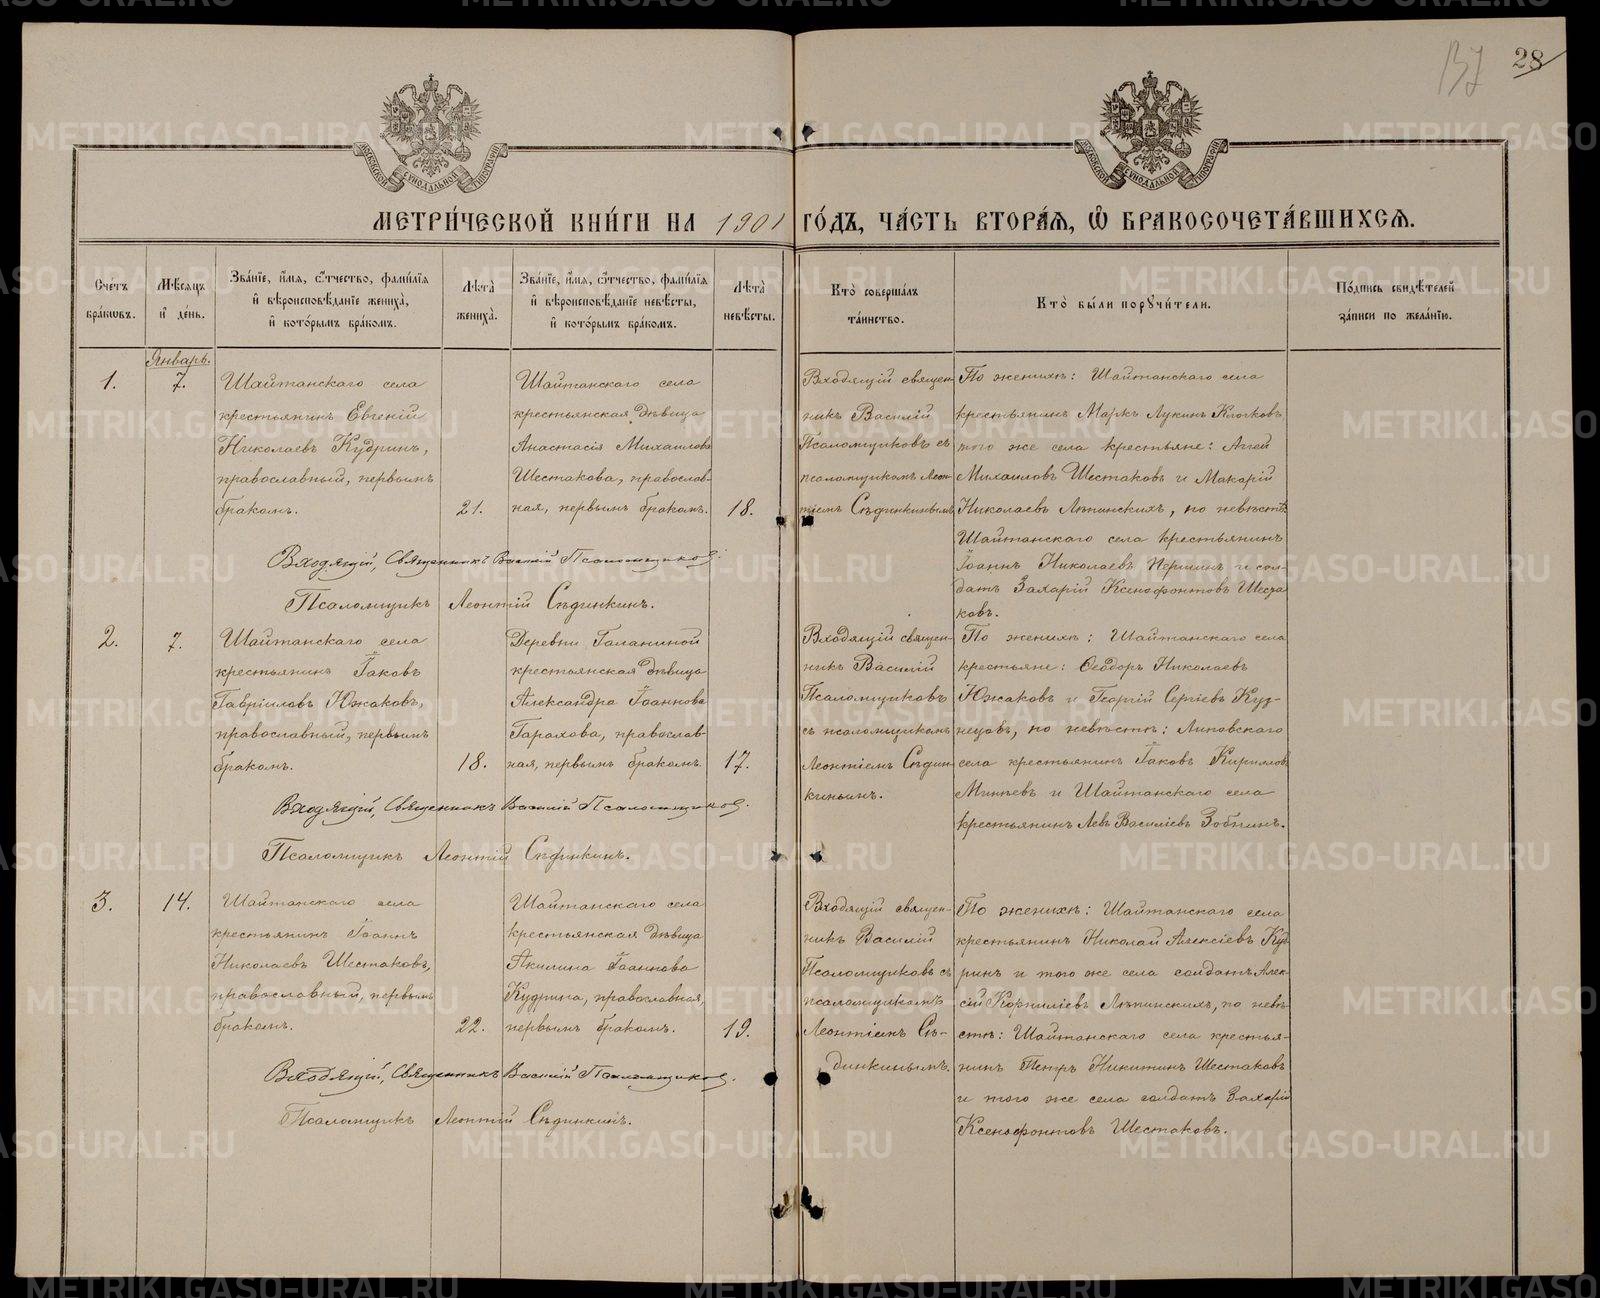 137 28
МОСКОВСКОЙ СѴНОДАЛЬНОЙ ТИПОГРАФІИ
МОСКОВСКОЙ СѴНОДАЛЬНОЙ ТИПОГРАФІИ
МЕТРИ́ЧЕСКОЙ КНИ́ГИ НА 1901 ГО́ДЪ, ЧА́СТЬ ВТОРА́Я, Ѽ БРАКОСОЧЕТА́ВШИХСЯ.
Сче́тъ бра́ковъ.
Мѣ́сяцъ и҆ де́нь.
Зва́нїе, и҆́мя, ѻ҆́тчество, фами́лїя
и҆ вѣроисповѣ́данїе жениха̀,
и҆ кото́рымъ бра́комъ.
Лѣта̀ жениха̀.
Зва́нїе, и҆́мя, ѻ҆́тчество, фами́лїя
и҆ вѣроисповѣ́данїе невѣ́сты,
и҆ кото́рымъ бра́комъ.
Лѣта̀ невѣ́сты.
Кто̀ соверша́лъ
та́инство.
Кто̀ бы́ли порꙋчи́тели.
По́дпись свидѣ́телей
за́писи по жела́нїю.
1.
Январь.
7.
Шайтанскаго села
крестьянинъ Евгеній
Николаевъ Кудринъ,
православный, первымъ
бракомъ.
21.
Шайтанскаго села
крестьянская дѣвица
Анастасія Михаилова
Шестакова, православ-
ная, первымъ бракомъ.
18.
Входящій священ-
никъ Василій
Псаломщиковъ съ
псаломщикомъ Леон-
тіемъ Сѣдинкинымъ
По женихѣ: Шайтанскаго села
крестьянинъ Маркъ Лукинъ Клочковъ
того же села крестьяне: Аггей
Михаиловъ Шестаковъ и Макарій
Николаевъ Лѣпинскихъ, по невѣстѣ
Шайтанскаго села крестьянинъ
Іоаннъ Николаевъ Першинъ и сол-
датъ Захарій Ксенофонтовъ Шеста
ковъ.
Входящій, Священникъ Василій Псаломщиковъ.
Псаломщикъ Леонтій Сѣдинкинъ.
2.
7.
Шайтанскаго села
крестьянинъ Іаковъ
Гавріиловъ Южаковъ,
православный, первымъ
бракомъ.
18.
Деревни Галаниной
крестьянская дѣвица
Александра Іоаннова
Гарахова, православ-
ная, первымъ бракомъ.
17.
Входящій священ-
никъ Василій
Псаломщиковъ
съ псаломщикомъ
Леонтіемъ Сѣдин-
кинымъ.
По женихѣ: Шайтанскаго села
крестьяне: Ѳеодоръ Николаевъ
Южаковъ и Георгій Сергіевъ Куз-
нецовъ, по невѣстѣ: Липовскаго
села крестьянинъ Іаковъ Кириллов
Минѣевъ и Шайтанскаго села
крестьянинъ Левъ Василіевъ Зобнинъ.
Входящій, Священникъ Василій Псаломщиковъ.
Псаломщикъ Леонтій Сѣдинкинъ.
3.
14.
Шайтанскаго села
крестьянинъ Іоаннъ
Николаевъ Шестаковъ,
православный, первымъ
бракомъ.
22.
Шайтанскаго села
крестьянская дѣвица
Акилина Іоаннова
Кудрина, православная,
первымъ бракомъ.
19.
Входящій священ-
никъ Василій
Псаломщиковъ съ
псаломщикомъ
Леонтіемъ Сѣ-
динкинымъ.
По женихѣ: Шайтанскаго села
крестьянинъ Николай Алексіевъ Куд
ринъ и того же села солдатъ Алек-
сій Корниліевъ Лѣпинскихъ, по невѣ-
стѣ: Шайтанскаго села крестья-
нинъ Петръ Никитинъ Шестаковъ
и того же села солдатъ Захарій
Ксенофонтовъ Шестаковъ.
Входящій, Священникъ Василій Псаломщиковъ.
Псаломщикъ Леонтій Сѣдинкинъ.
METRIKI.GASO-URAL.RU